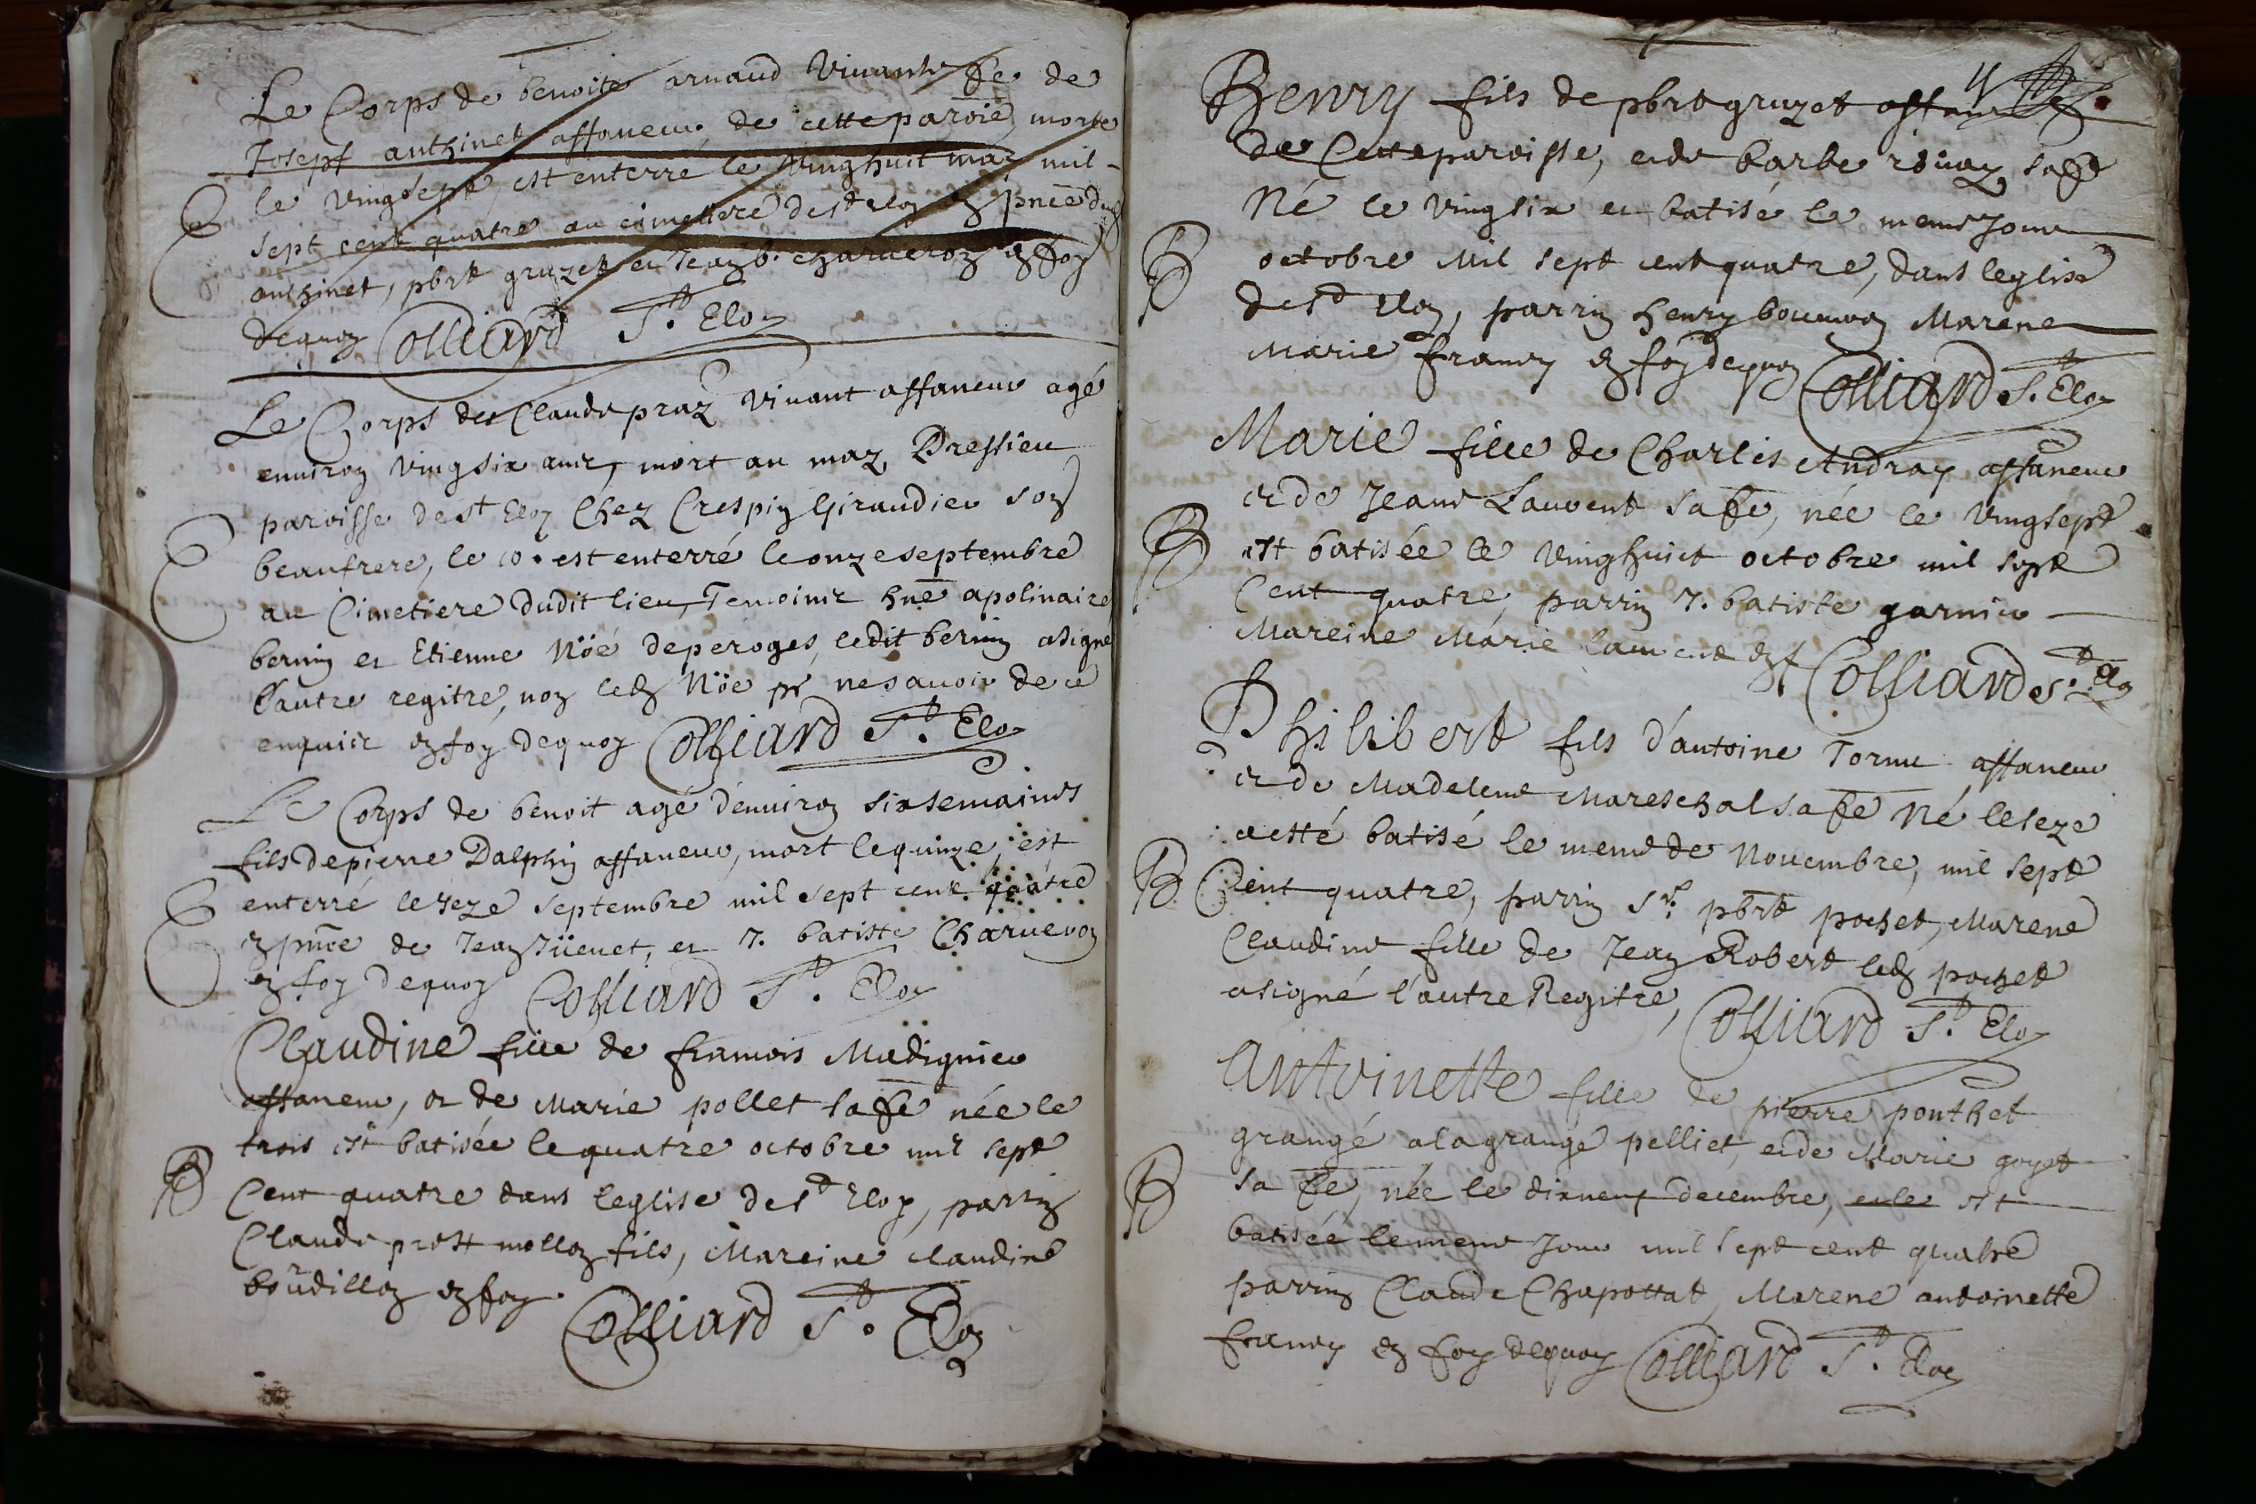 Le Corps de benoite arnaud vivante fe de
Josept anthinet affaneur de cette paroisse, morte
le vingsept, est enterré le vinghuit may mil
sept cent quatre au cimetiere de st Eloy en pnce dud
anthinet, pbrt gruzet et Jean b. charveron en foy
dequoy Colliard St. Eloy
Le Corps de Claude praz vivant affaneur agé
environ vingsix ans, mort au maz Dressieu
paroisse de st Eloy Chez Crespin Giraudier son
beaufrere, le 10. est enterré le onze septembre
au Cimetiere dudit lieu, Temoins hne apolinaire
bernin et Etienne Nöé de peroges, ledit bernin asigné
l'autre regitre, non led Nöe pr ne savoir de ce
enquis en foy dequoy Colliard St. Eloy
Le Corps de benoit agé d'environ six semaines
fils de pierre Dalphin affaneur, mort le quinze, est
enterré le seze septembre mil sept cent quatre
en pnce de Jean Jüenet, et J. batiste Charveron
en foy dequoy Colliard St. Eloy
Claudine fille de francois Madignier
affaneur, et de Marie pollet sa fe née le
trois est batisée le quatre octobre mil sept
B Cent quatre dans leglise de st Eloy, parrin
Claude prost mollon fils, Mareine claudine
bourdillon en foy
Colliard St. Eloy
Henry fils de pbrt gruzet affaneur
de Cette paroisse, et de barbe sa fe
Né le vingsix et batisé le meme Jour
B octobre Mil sept cent quatre, dans leglise
de st Eloy, parrin henry bouvron Marene
Marie francy en foy dequoy Colliard St. Eloy
Marie fille de Charles Andray affaneur
et de Jeane Laurent sa fe, née le vingsept
B est batisée le vinghuict octobre mil sept
Cent quatre, parrin J. batiste garnier
Mareine Marie laurent en f Colliard St. Eloy
Philibert fils d'antoine Tornu affaneur
et de Madelene Mareschal sa fe Né le seze
a esté batisé le meme de Novembre, mil sept
B Cent quatre, parrin Sr. pbrt pochet, Marene
Claudine fille de Jean Robert led pochet
asigné l'autre Regitre, Colliard St. Eloy
Antoinette fille de pierre ponthet
grangé a la grange pelliet, et de Marie goyet
B sa fe, née le dixneuf decembre, et le est
batisée le meme Jour mil sept cent quatre
parrin Claude Chapottat, Marene antoinette
francy en foy dequoy Colliard St. Eloy